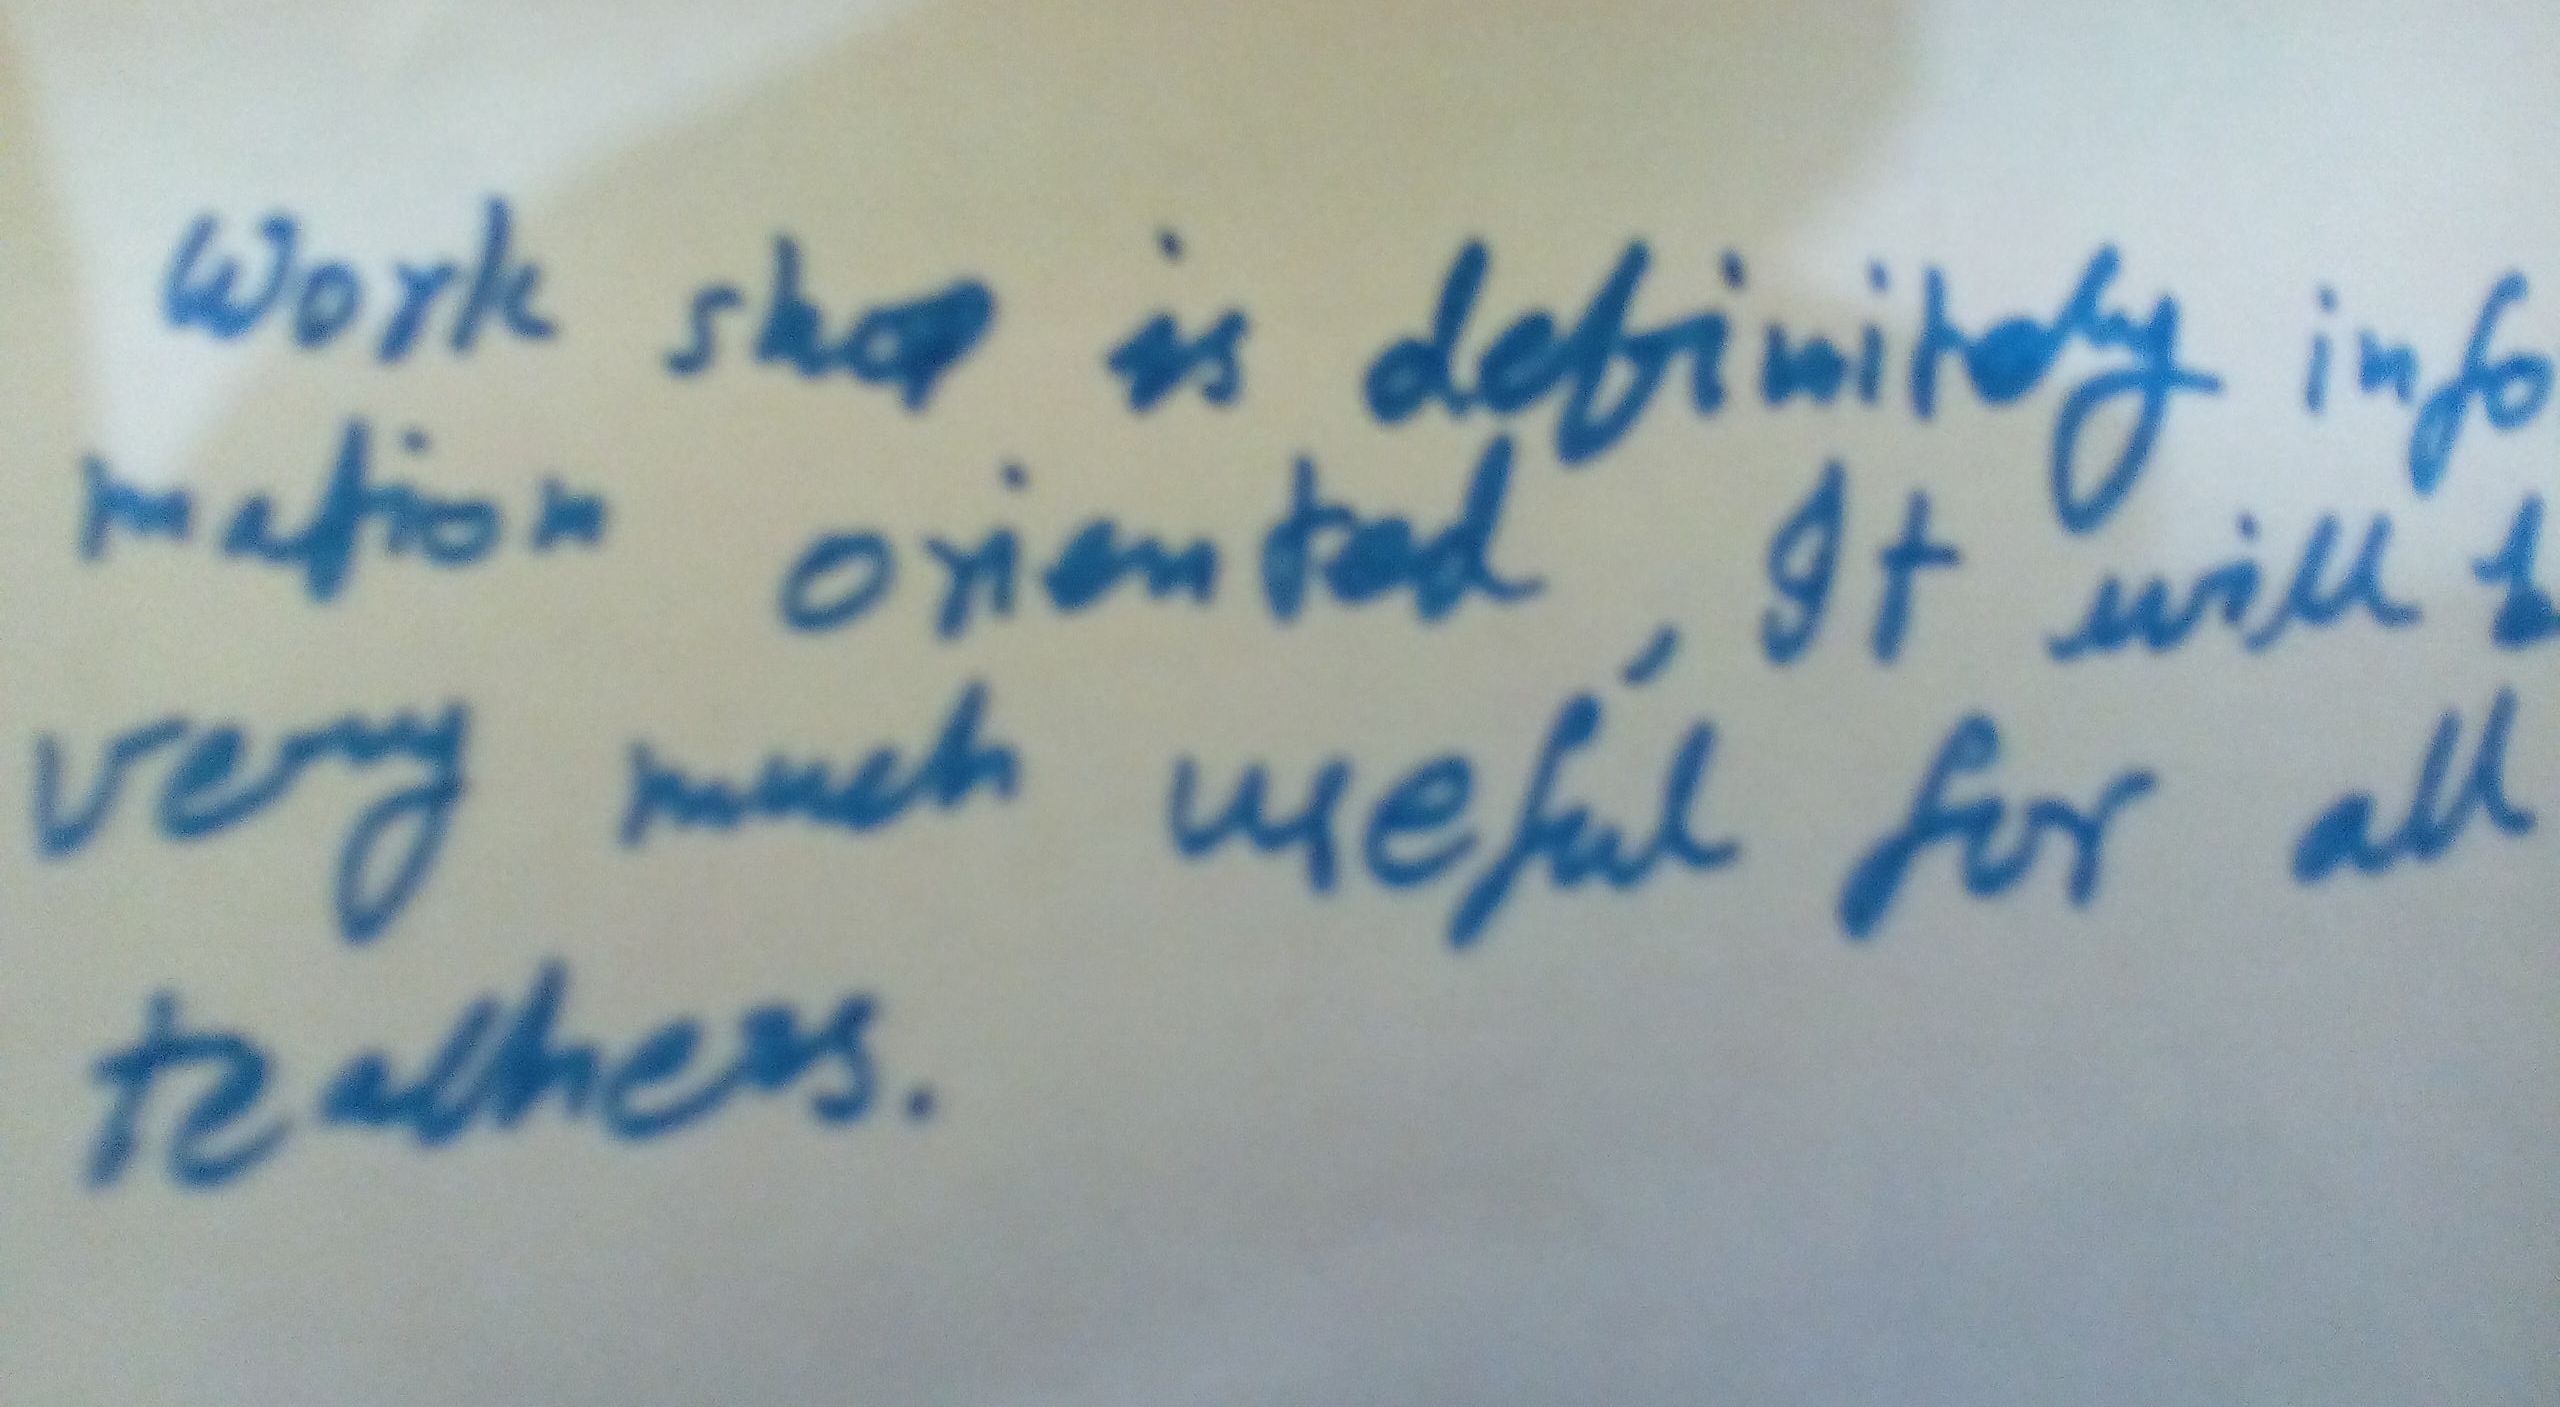 Work shop is definitely info
mation oriented, It will be
very much useful for all
teachers.